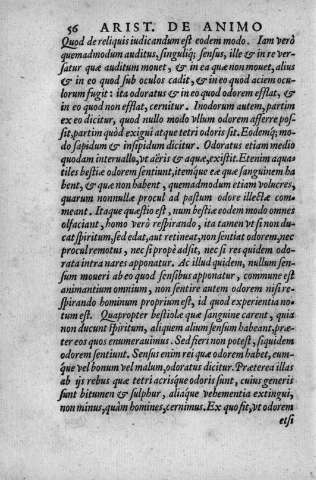 56 ARIST. DE ANIMO
Quod de reliquis iudicandum est eodem modo. Iam verò
quemadmodum auditus, singuliq; sensus, ille & in re ver-
satur quæ auditum mouet, & in ea quæ non mouet, alius
& in eo quod sub oculos cadit, & in eo quod aciem ocu-
lorum fugit: ita odoratus & in eo quod odorem efflat, &
in eo quod non efflat, cernitur. Inodorum autem, partim
ex eo dicitur, quod nullo modo vllum odorem afferre pos-
sit, partim quòd exigui atque tetri odoris sit. Eodemq; mo-
do sapidum & insipidum dicitur. Odoratus etiam medio
quodam interuallo, vt aëris & aquæ, existit. Etenim aqua-
tiles bestiæ odorem sentiunt, itemque eæ quæ sanguinem ha
bent, & quæ non habent, quemadmodum etiam volucres,
quarum nonnullæ procul ad pastum odore illectæ com-
meant. Itaque quæstio est, num bestiæ eodem modo omnes
olfaciant, homo verò respirando, ita tamen vt si non du-
cat spiritum, sed edat, aut retineat, non sentiat odorem, nec
procul remotus, nec si propè adsit, nec si res quidem odo-
rata intra nares apponatur. Ac illud quidem, nullum sen-
sum moueri ab eo quod sensibus apponatur, commune est
animantium omnium, non sentire autem odorem nisi re-
spirando hominum proprium est, id quod experientia no-
tum est. Quapropter bestiolæ quæ sanguine carent, quia
non ducunt spiritum, aliquem alium sensum habeant, præ-
ter eos quos enumerauimus. Sed fieri non potest, siquidem
odorem sentiunt. Sensus enim rei quæ odorem habet, eum-
que vel bonum vel malum, odoratus dicitur. Præterea illas
ab ijs rebus quæ tetri acrisque odoris sunt, cuius generis
sunt bitumen & sulphur, aliáque vehementia extingui,
non minus, quàm homines, cernimus. Ex quo fit, vt odorem
etsi